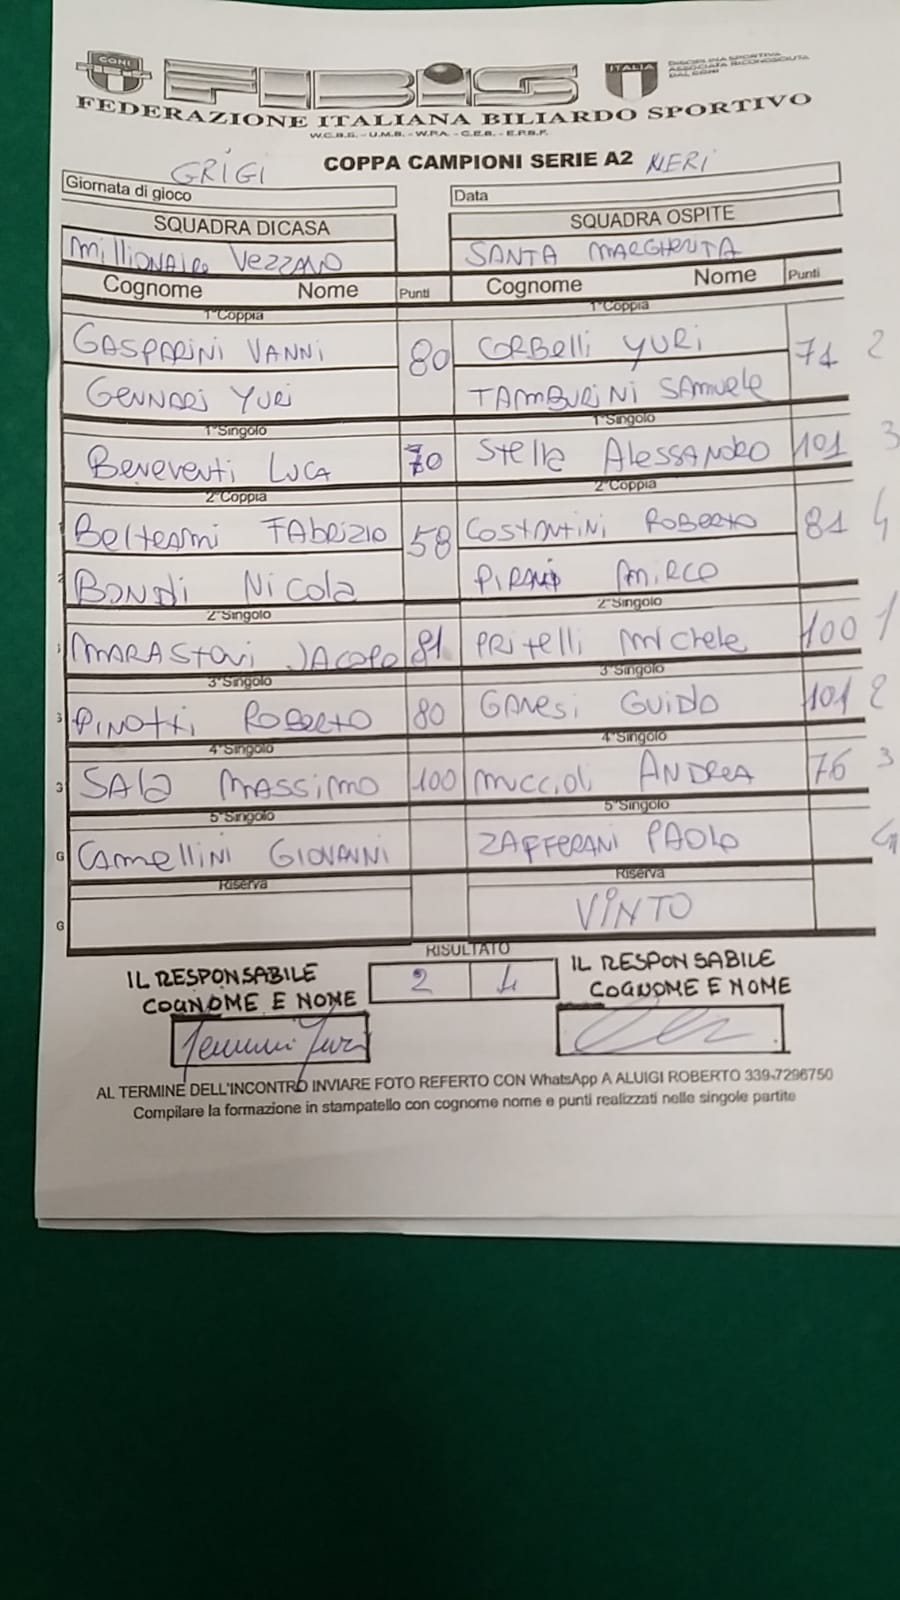 CONI
FIBiS
ITALIA
DISCIPLINA SPORTIVA
ASSOCIATA RICONOSCIUTA
DAL CONI
FEDERAZIONE ITALIANA BILIARDO SPORTIVO
W.C.B.S. - U.M.B. - W.P.A. - C.E.B. - E.P.B.F.
COPPA CAMPIONI SERIE A2
GRIGI NERI
Giornata di gioco Data
SQUADRA DI CASA SQUADRA OSPITE
MillIONAIRe VEZZANO SANTA MARGHERITA
Cognome Nome Punti Cognome Nome Punti
1°Coppia 1°Coppia
GASPARINI VANNi 80 CORBElli YURi 71 2
GENNARi YURi TAMBURINI SAMUELE
1°Singolo 1°Singolo
BENEVENTi LUCA 70 STELLA ALESSANDRO 101 3
2°Coppia 2°Coppia
BELTRAMI FABRIZIO 58 COSTANTINI ROBERTO 81 4
BONDI NICOLA MIRCO
2°Singolo 2°Singolo
MARASTONI JACOPO 81 PRITELLI MICHELE 100 1
3°Singolo 3°Singolo
PINOTTI ROBERTO 80 GANESI GUIDO 101 2
4°Singolo 4°Singolo
SALA MASSIMO 100 MUCCIOLI ANDREA 76 3
5°Singolo 5°Singolo
CAMELLINI GIOVANNI ZAFFERANI PAOLO 4
Riserva Riserva
VINTO
RISULTATO
2 4
IL RESPONSABILE IL RESPONSABILE
COGNOME E NOME COGNOME E NOME
AL TERMINE DELL'INCONTRO INVIARE FOTO REFERTO CON WhatsApp A ALUIGI ROBERTO 339-7296750
Compilare la formazione in stampatello con cognome nome e punti realizzati nelle singole partite